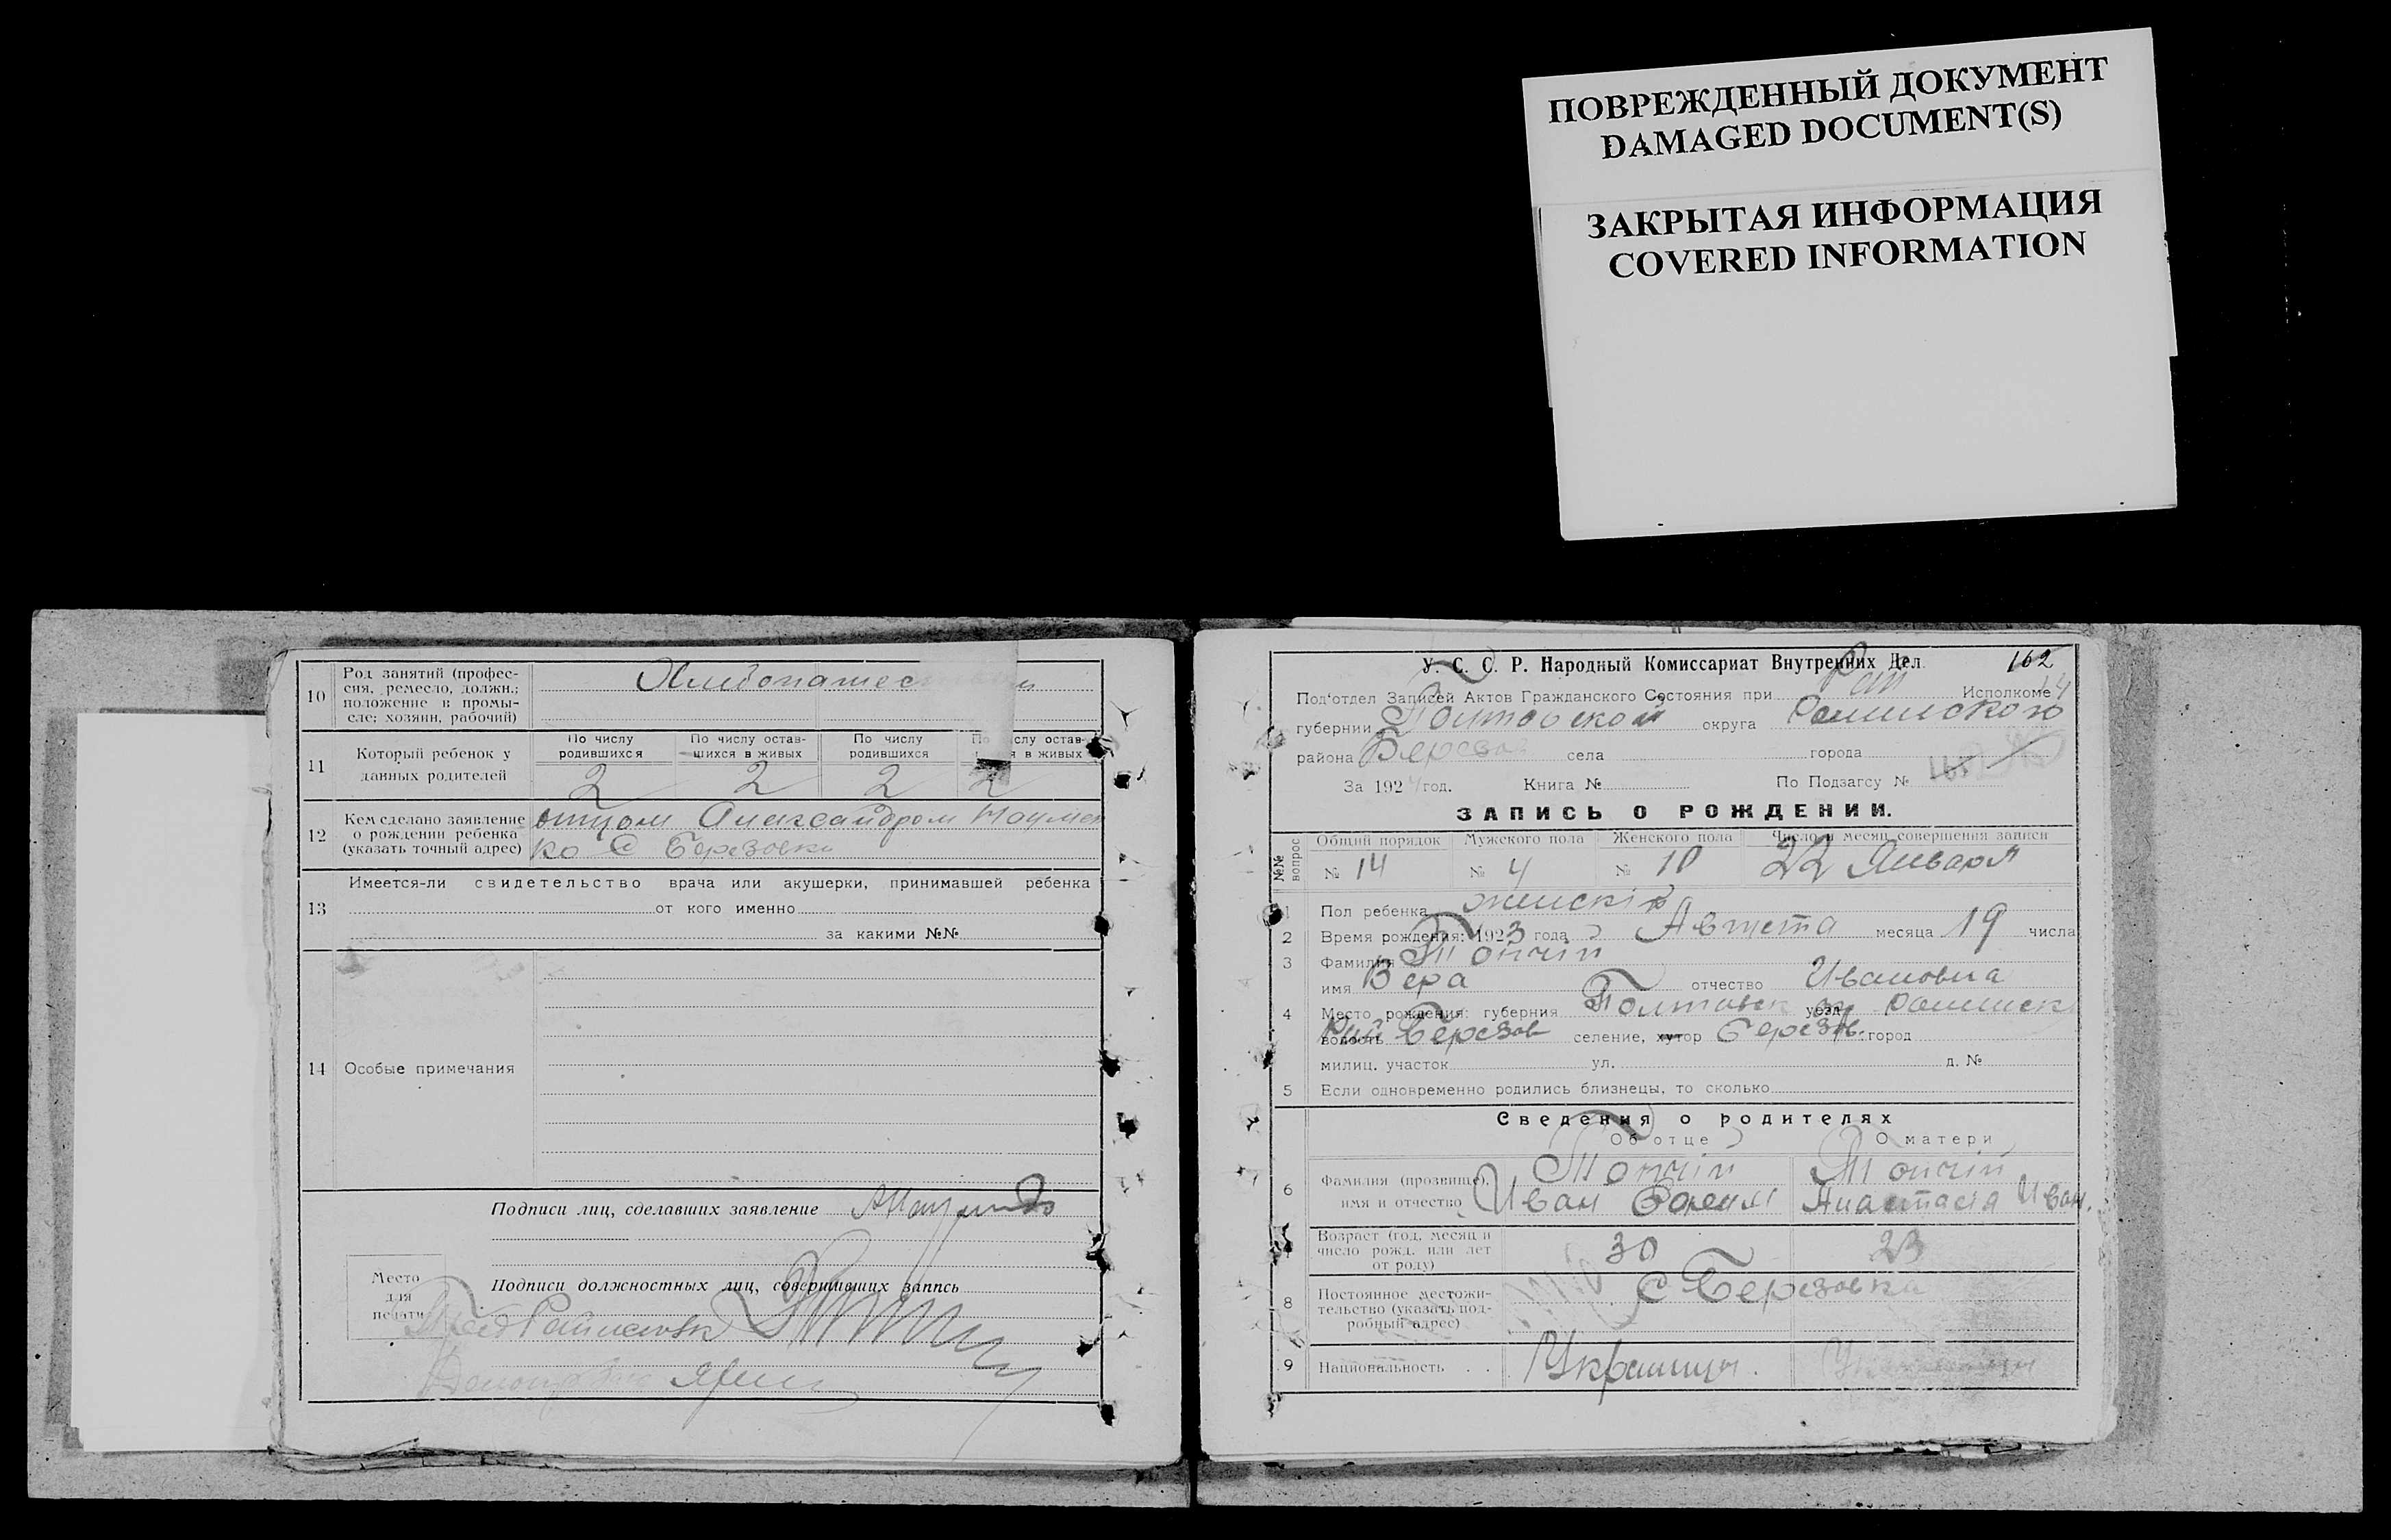 ПОВРЕЖДЕННЫЙ ДОКУМЕНТ
DAMAGED DOCUMENT(S)
ЗАКРЫТАЯ ИНФОРМАЦИЯ
COVERED INFORMATION
10 Род занятий (профес-
сия, ремесло, должн.;
положение в промы-
сле; хозяин, рабочий)
11 Который ребенок у
данных родителей
По числу родившихся
По числу остав-
шихся в живых
По числу родившихся
2 2 2 2
12 Кем сделано заявление
о рождении ребенка
(указать точный адрес)
отцом Александром Наумен
ко С Березовка
Имеется-ли свидетельство врача или акушерки, принимавшей ребенка
13 от кого именно
за какими №№
14 Особые примечания
Подписи лиц, сделавших заявление
Место
для
печати
Подписи должностных лиц, совершивших запись
У. С. С. Р. Народный Комиссариат Внутренних Дел 162
Под'отдел Записей Актов Гражданского Состояния при Рай Исполкоме
губернии Полтавской округа Роменского
района Березов села города
За 1924 год. Книга № По Подзагсу №
ЗАПИСЬ О РОЖДЕНИИ.
№№ вопрос
Общий порядок Мужского пола Женского пола Число и месяц совершения записи
№ 14 № 4 № 10 22 Января
1 Пол ребенка женскій
2 Время рождения: 1923 года Августа месяца 19 числа
3 Фамилия Топчій
имя Вера отчество Ивановна
4 Место рождения: губерния Полтавск уезд Роменск
волость Рай Березов селение, хутор Березов. город
милиц. участок ул. д. №
5 Если одновременно родились близнецы, то сколько
Сведения о родителях
Об отце О матери
6 Фамилия (прозвище),
имя и отчество
Топчій Топчій
Иван Анастасія Иван.
Возраст (год, месяц и
число рожд. или лет
от роду)
30 23
8 Постоянное местожи-
тельство (указать под-
робный адрес)
С Березовка
9 Национальность . . Украинцы.